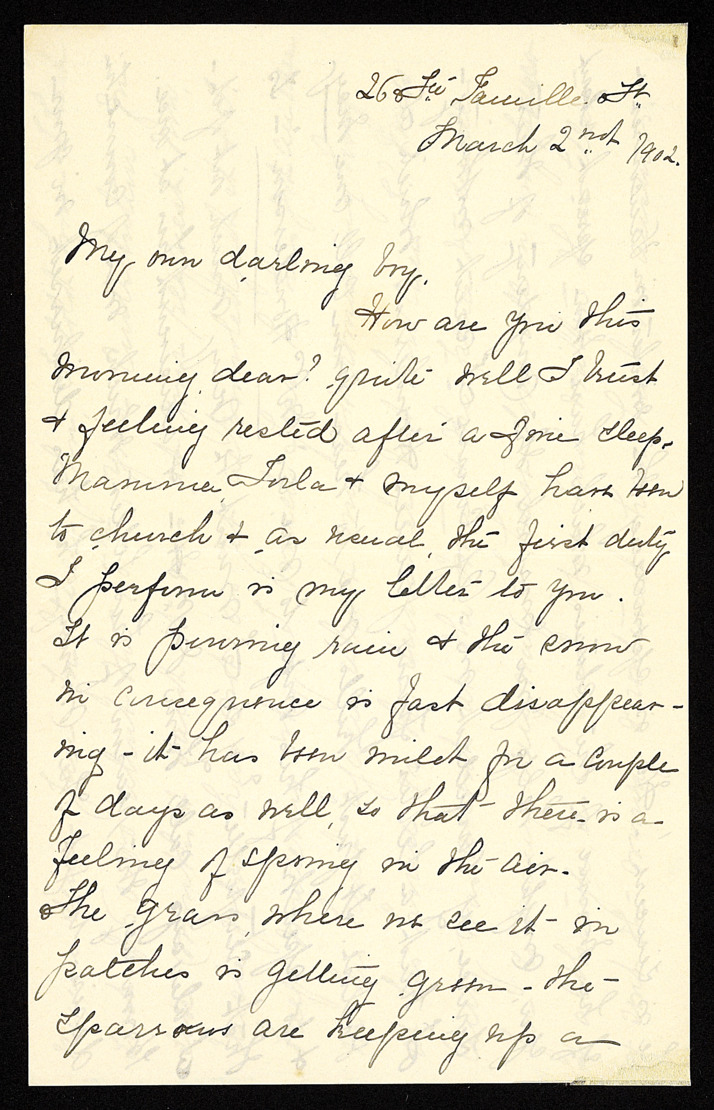 268 Ste Famille St.
March 2nd 1902.
My own darling boy,
How are you this
morning, dear? quite well I trust
& feeling rested after a fine sleep.
Mamma, & myself have been
to church & as usual, the first duty
I perform is my letter to you.
It is pouring rain & the snow
in consequence is fast disappear-
ing - it has been mild for a couple
of days as well, so that there is a
feeling of spring in the air.
The grass, where we see it in
patches is getting green - the
sparrows are keeping up a